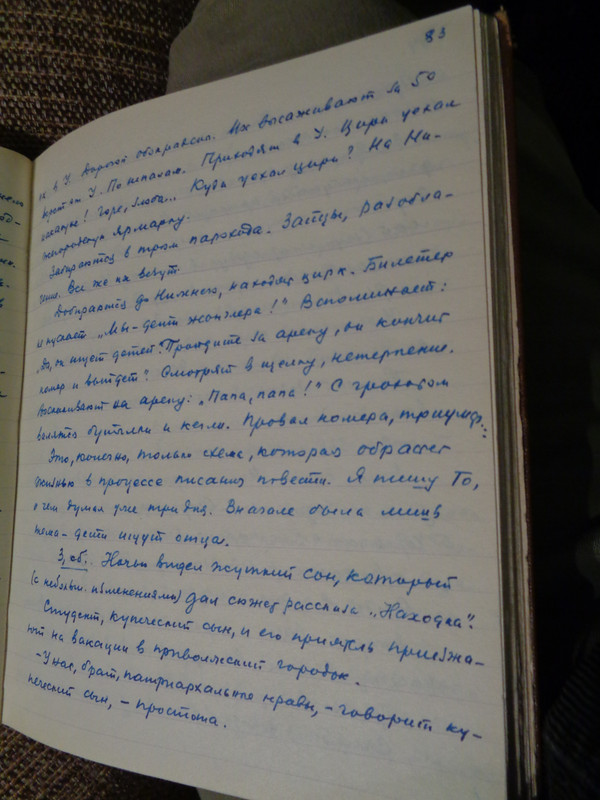 83
их в У. Дорогой обокрали. Их высаживают за 50
верст от У. По шпалам. Приходят в У. Цирк уехал
накануне! Горе, слезы... Куда уехал цирк? На Ни-
жегородскую ярмарку.
Забираются в трюм парохода. Зайцы, разобла-
чение. Все же их везут.
Добираются до Нижнего, находят цирк. Билетер
не пускает. „Мы - дети жонглера!" Вспоминает:
„Да, он ищет детей". „Пройдите за арену, он кончит
номер и выйдет". Смотрят в щелку, нетерпение.
Выскакивают на арену: „Папа, папа!" С грохотом
валятся бутылки и кегли. Провал номера, триумф...
Это, конечно, только схема, которая обрастет
жизнью в процессе писания повести. Я пишу то,
о чем думал уже три дня. Вначале была лишь
тема - дети ищут отца.
3, сб. Ночью видел жуткий сон, который
(с небольш. изменениями) дал сюжет рассказа „Находка".
Студент, купеческий сын, и его приятель приезжа-
ют на вакации в приволжский городок.
- У нас, брат, патриархальные нравы, - говорит ку-
печеский сын, - простота.